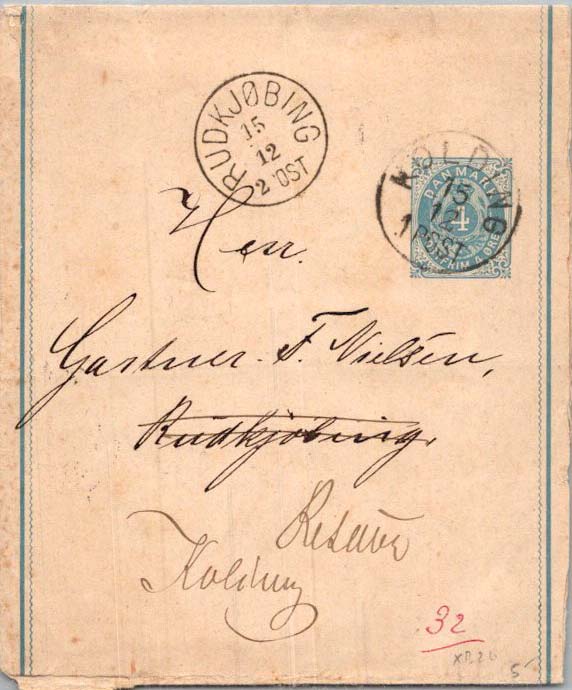 RUDKJØBING
15
12
2 POST
KOLDING
15
12
1 POST
DANMARK
4
4 ØRE
Herr.
Gartner. F. Nielsen,
Rudkjøbing.
Retour
Kolding
32
5